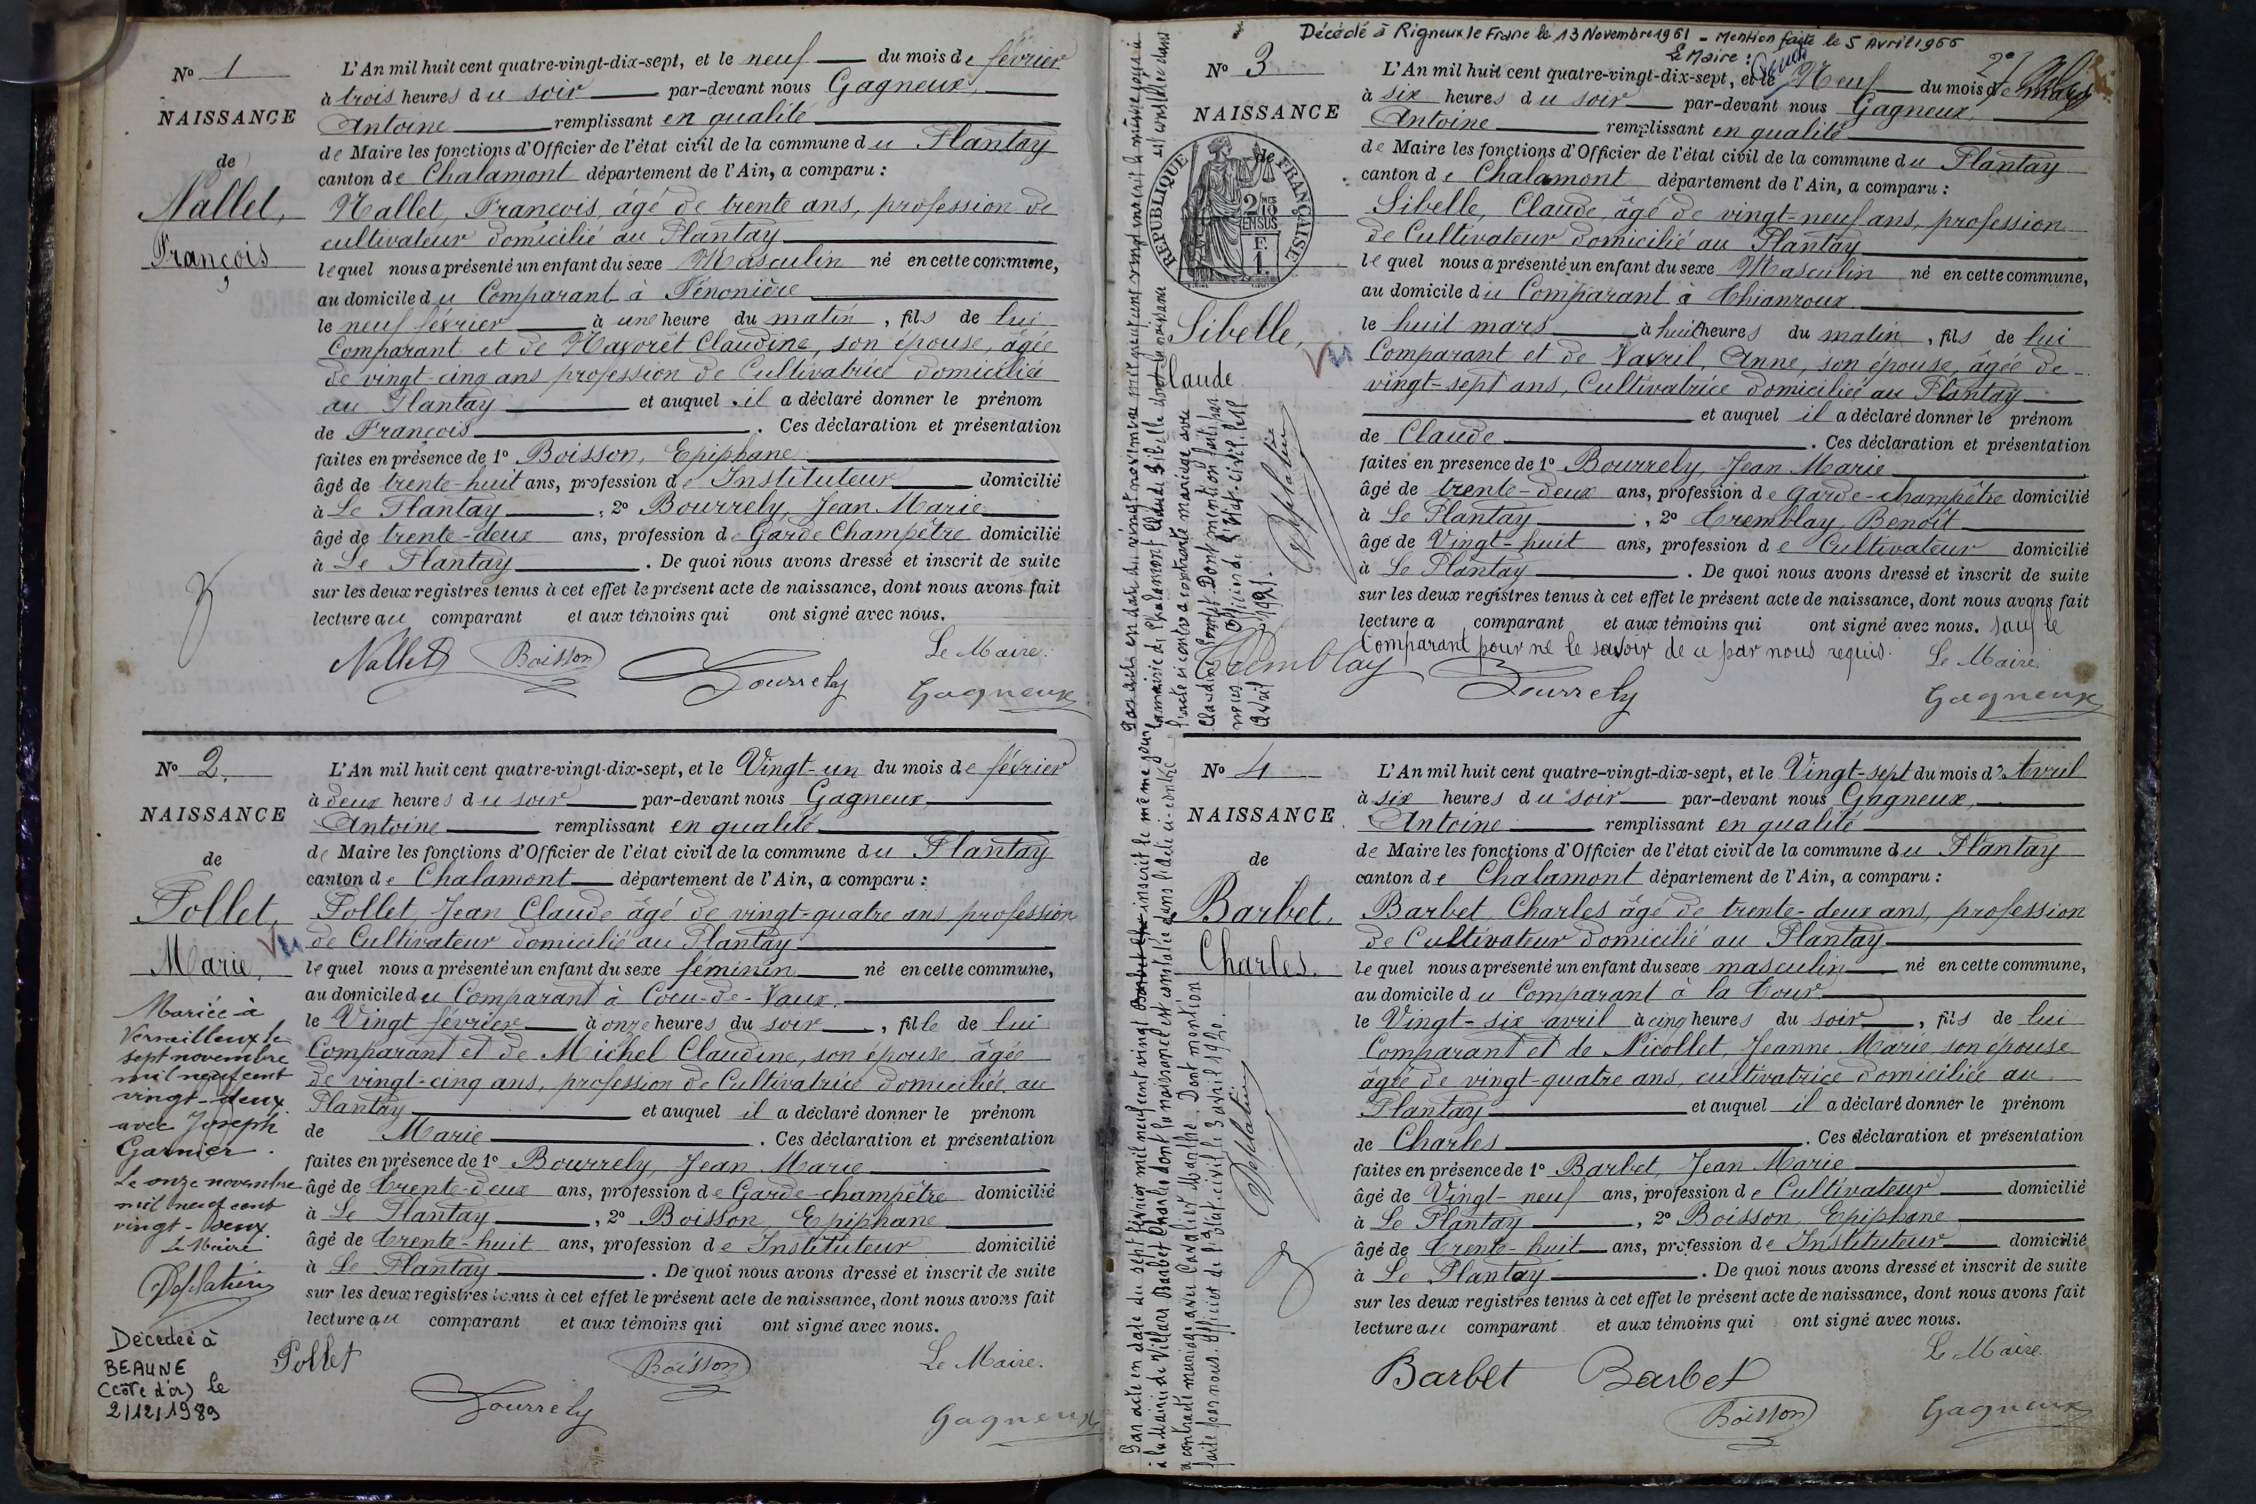 No 1
NAISSANCE
de
Nallet,
François
L'An mil huit cent quatre-vingt-dix-sept, et le neuf du mois de février
à trois heures du soir par-devant nous Gagneux,
Antoine remplissant en qualité
de Maire les fonctions d'Officier de l'état civil de la commune du Plantay
canton de Chalamont département de l'Ain, a comparu :
Nallet, François, âgé de trente ans, profession de
cultivateur domicilié au Plantay
lequel nous a présenté un enfant du sexe Masculin né en cette commune,
au domicile du Comparant à
le neuf février à une heure du matin, fils de lui
Comparant et de Claudine, son épouse, âgée
de vingt-cinq ans profession de Cultivatrice domiciliée
au Plantay et auquel il a déclaré donner le prénom
de François. Ces déclaration et présentation
faites en présence de 1º Boisson, Epiphane
âgé de trente-huit ans, profession d'Instituteur domicilié
à Le Plantay, 2º Bourrely, Jean Marie
âgé de trente-deux ans, profession de Garde Champêtre domicilié
à Le Plantay. De quoi nous avons dressé et inscrit de suite
sur les deux registres tenus à cet effet le présent acte de naissance, dont nous avons fait
lecture au comparant et aux témoins qui ont signé avec nous.
Le Maire.
Nallet Boisson Bourrely Gagneux
No 2.
NAISSANCE
de
Pollet,
Marie,
Vu
Mariée à
Versailleux le
sept novembre
mil neuf cent
vingt-deux
avec Joseph
Garnier.
Le onze novembre
mil neuf cent
vingt-deux.
Le Maire
Décédée à
BEAUNE
(côte d'or) le
2/12/1989
L'An mil huit cent quatre-vingt-dix-sept, et le Vingt-un du mois de février
à deux heures du soir par-devant nous Gagneux
Antoine remplissant en qualité
de Maire les fonctions d'Officier de l'état civil de la commune du Plantay
canton de Chalamont département de l'Ain, a comparu :
Pollet, Jean Claude âgé de vingt-quatre ans profession
de Cultivateur domicilié au Plantay
lequel nous a présenté un enfant du sexe féminin né en cette commune,
au domicile du Comparant à Cocu-de-Vaux,
le Vingt février à onze heures du soir, fille de lui
Comparant et de Michel Claudine, son épouse, âgée
de vingt-cinq ans, profession de Cultivatrice domiciliée au
Plantay et auquel il a déclaré donner le prénom
de Marie. Ces déclaration et présentation
faites en présence de 1º Bourrely, Jean Marie
âgé de trente-deux ans, profession de Garde-champêtre domicilié
à Le Plantay, 2º Boisson, Epiphane
âgé de trente-huit ans, profession d'Instituteur domicilié
à Le Plantay. De quoi nous avons dressé et inscrit de suite
sur les deux registres tenus à cet effet le présent acte de naissance, dont nous avons fait
lecture au comparant et aux témoins qui ont signé avec nous.
Pollet Boisson Le Maire.
Bourrely Gagneux
Décédé à Rigneux le Franc le 13 Novembre 1961 - Mention faite le 5 Avril 1966
Le Maire :
No 3
NAISSANCE
de
REPUBLIQUE FRANÇAISE
Sibelle,
Claude
Vu
L'An mil huit cent quatre-vingt-dix-sept, et le Neuf du mois de mars
à six heures du soir par-devant nous Gagneux,
Antoine remplissant en qualité
de Maire les fonctions d'Officier de l'état civil de la commune du Plantay
canton de Chalamont département de l'Ain, a comparu :
Sibelle, Claude, âgé de vingt-neuf ans, profession
de Cultivateur domicilié au Plantay
lequel nous a présenté un enfant du sexe Masculin né en cette commune,
au domicile du Comparant à
le huit mars à huit heures du matin, fils de lui
Comparant et de Anne, son épouse, âgée de
vingt-sept ans, Cultivatrice domiciliée au Plantay
et auquel il a déclaré donner le prénom
de Claude. Ces déclaration et présentation
faites en présence de 1º Bourrely, Jean Marie
âgé de trente-deux ans, profession de garde-champêtre domicilié
à Le Plantay, 2º Tremblay, Benoît
âgé de Vingt-huit ans, profession de Cultivateur domicilié
à Le Plantay. De quoi nous avons dressé et inscrit de suite
sur les deux registres tenus à cet effet le présent acte de naissance, dont nous avons fait
lecture a comparant et aux témoins qui ont signé avec nous. sauf le
Comparant pour ne le savoir de ce par nous requis.
Le Maire.
Tremblay Bourrely Gagneux
No 4
NAISSANCE
de
Barbet,
Charles.
Par acte en date du sept février mil neuf cent vingt inscrit le même jour
à la Mairie de Villars Barbet Charles dont la naissance est constatée dans l'acte ci-contre
a contracté mariage avec Cavalier Marthe. Dont mention
faite par nous Officier de l'état-civil le 3 avril 1920.
L'An mil huit cent quatre-vingt-dix-sept, et le Vingt-sept du mois d'Avril
à six heures du soir par-devant nous Gagneux,
Antoine remplissant en qualité
de Maire les fonctions d'Officier de l'état civil de la commune du Plantay
canton de Chalamont département de l'Ain, a comparu :
Barbet, Charles âgé de trente-deux ans, profession
de Cultivateur domicilié au Plantay
lequel nous a présenté un enfant du sexe masculin né en cette commune,
au domicile du Comparant à la Tour
le Vingt-six avril à cinq heures du soir, fils de lui
Comparant et de Nicollet, Jeanne Marie son épouse
âgée de vingt-quatre ans, cultivatrice domiciliée au
Plantay et auquel il a déclaré donner le prénom
de Charles. Ces déclaration et présentation
faites en présence de 1º Barbet, Jean Marie
âgé de Vingt-neuf ans, profession de Cultivateur domicilié
à Le Plantay, 2º Boisson, Epiphane
âgé de trente-huit ans, profession d'Instituteur domicilié
à Le Plantay. De quoi nous avons dressé et inscrit de suite
sur les deux registres tenus à cet effet le présent acte de naissance, dont nous avons fait
lecture au comparant et aux témoins qui ont signé avec nous.
Le Maire.
Barbet Barbet
Boisson Gagneux